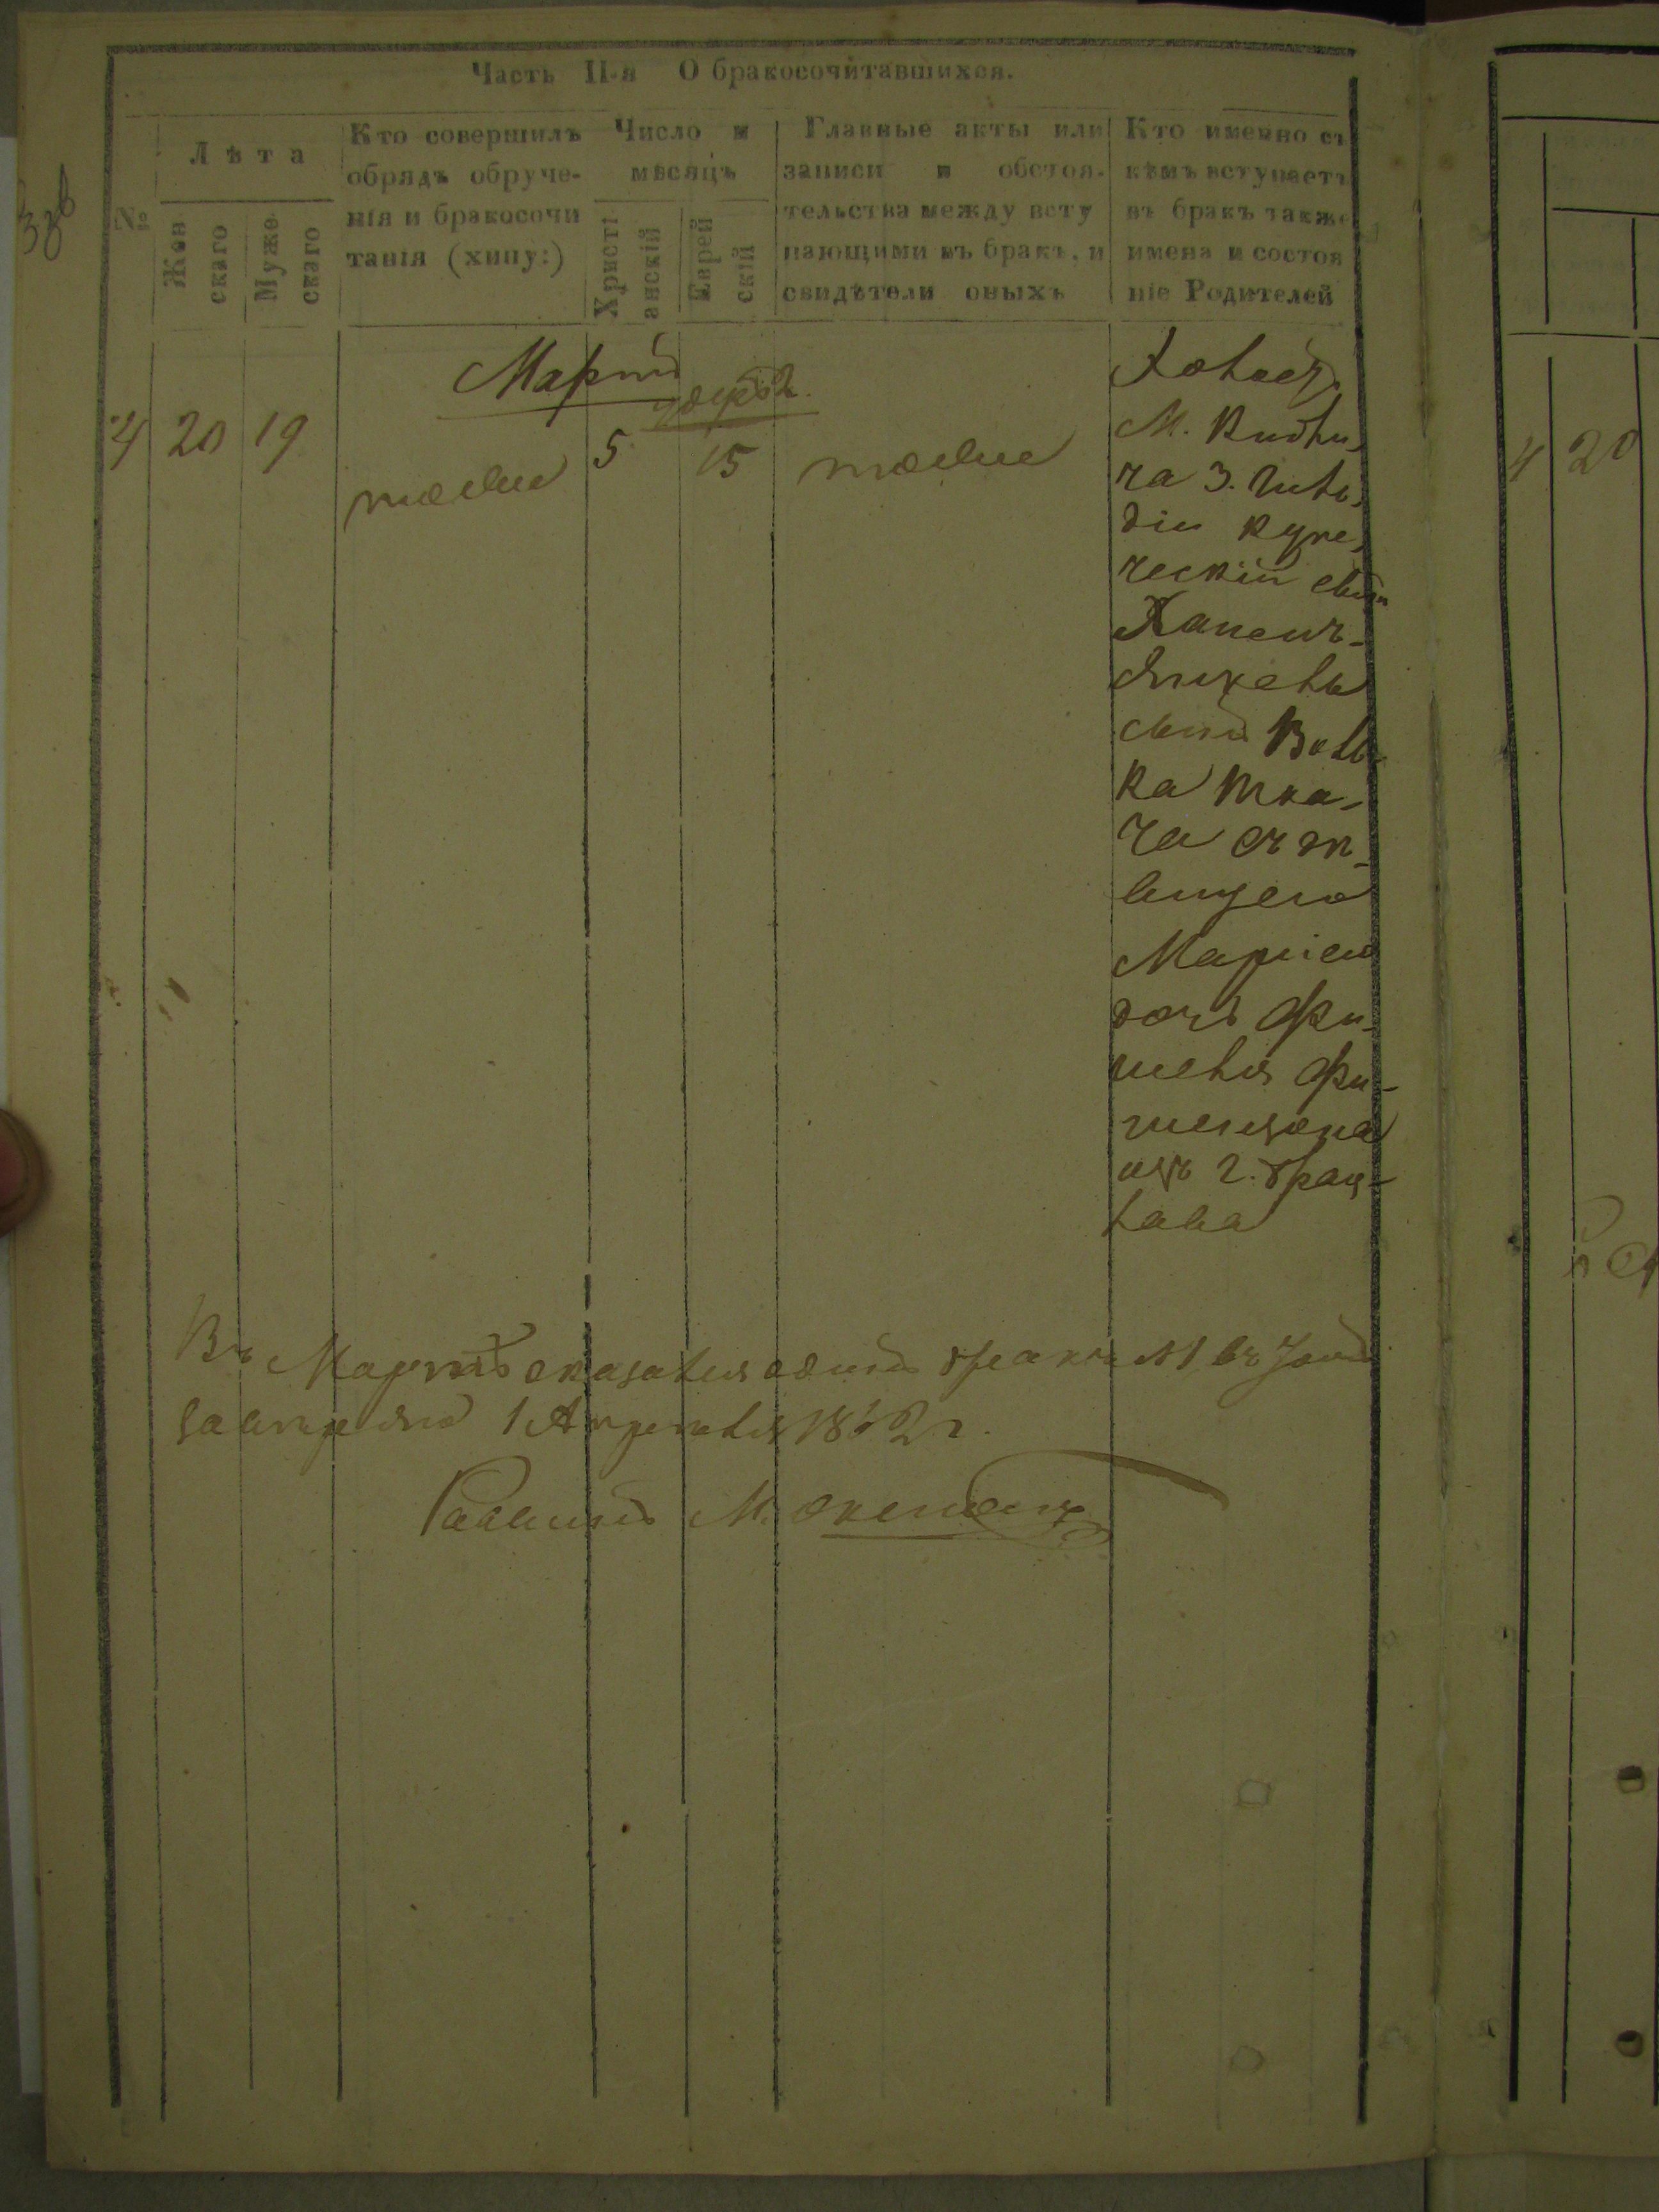 Часть II-я О бракосочитавшихся.
№
Лѣта
Женскаго
Мужескаго
Кто совершилъ
обрядъ обруче-
нія и бракосочи
танія (хупу:)
Число и
мѣсяцъ
Христіанскій
Еврейскій
Главные акты или
записи и обстоя-
тельства между всту
пающими въ бракъ, и
свидѣтели оныхъ
Кто именно съ
кѣмъ вступаетъ
въ бракъ также
имена и состоя
ніе Родителей
Мартъ
4 20 19 тоже 5 15 тоже
Холосд.
М.
ча 3. гиль,
діи купе,
ческій сынъ
сынъ Воль-
ка Тка-
ча съ дѣ-
вицею
Маріею
дочь Фи-
шеля Фи-
шензона
изъ г. Брац-
лава
Въ Мартѣ оказался одинъ бракъ №1 въ
1 Апреля 1862 г.
Раввинъ М.
4 20